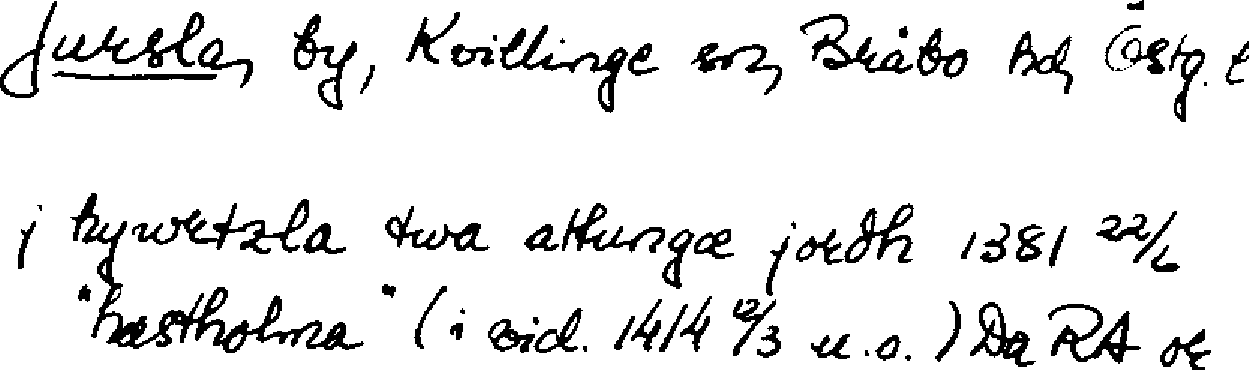 Jursla, by, Kvillinge sn, Bråbo hd, Östg. l
j hywrtzla twa attungæ jordh 1381 22/6
"hæstholma" (i vid. 1414 12/3 u.o.) Da RA or